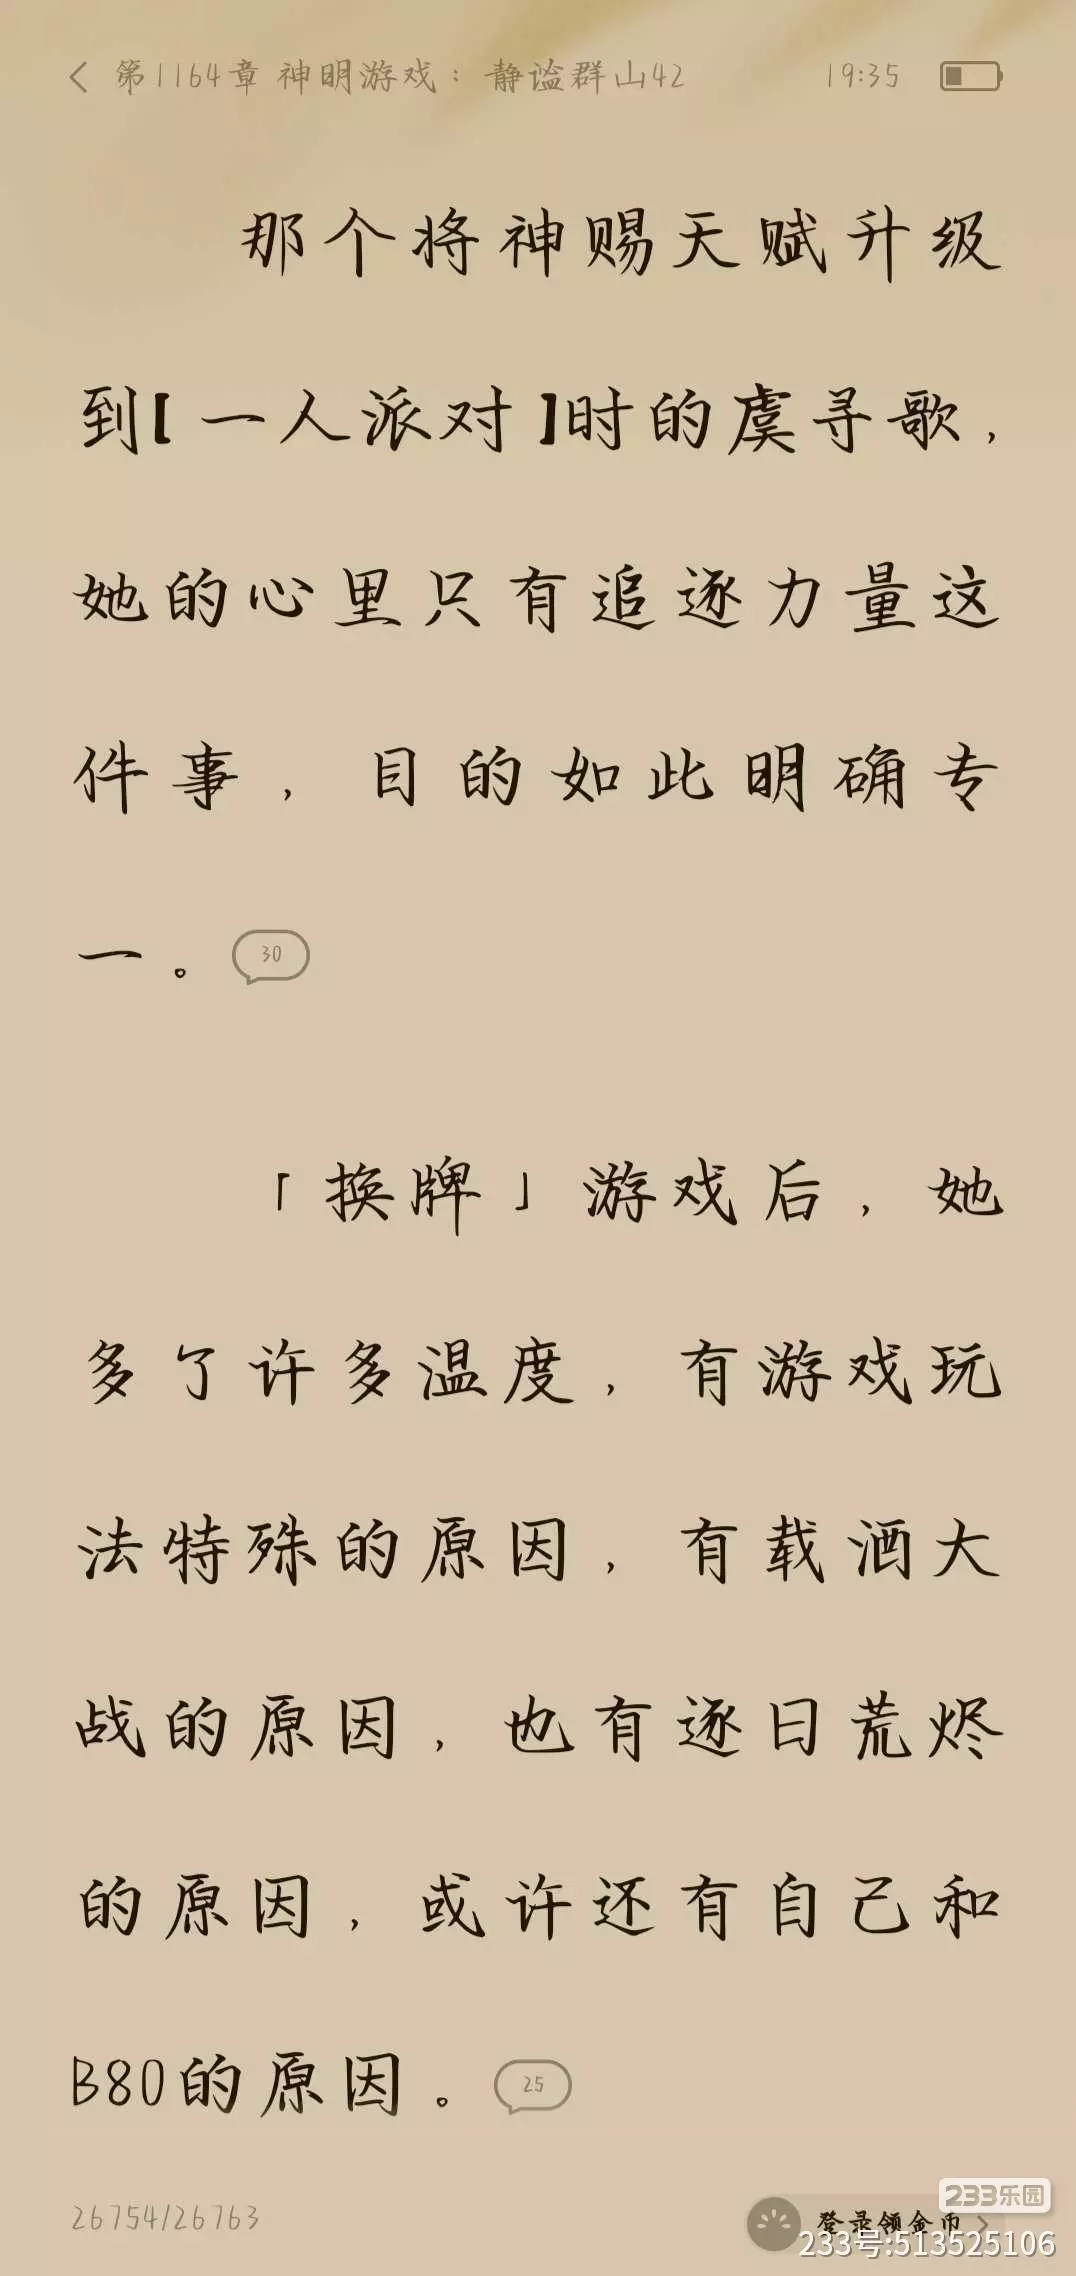 第1164章 神明游戏：静谧群山42
19:35
那个将神赐天赋升级
到【一人派对】时的虞寻歌，
她的心里只有追逐力量这
件事，目的如此明确专
一。
30
「换牌」游戏后，她
多了许多温度，有游戏玩
法特殊的原因，有载酒大
战的原因，也有逐日荒烬
的原因，或许还有自己和
B80的原因。
25
26754/26763
登录领金币
233乐园
233号:513525106